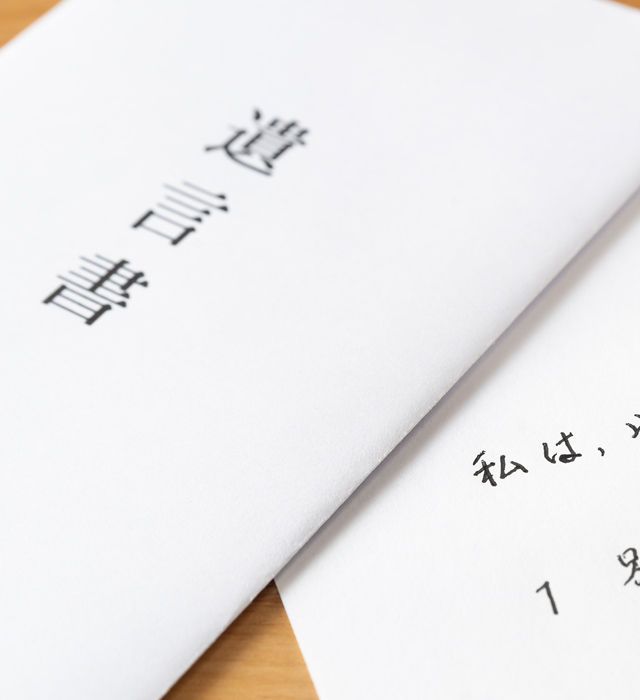 遺言書
私は、
1